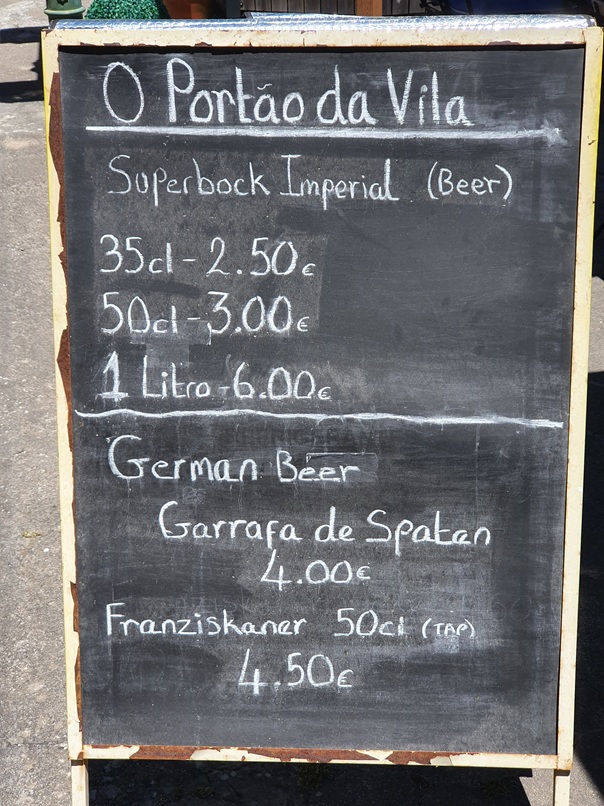 O Portão da Vila
Superbock Imperial (Beer)
35cl - 2.50€
50cl - 3.00€
1 Litro - 6.00€
German Beer
Garrafa de Spatan
4.00€
Franziskaner 50cl (TAP)
4.50€